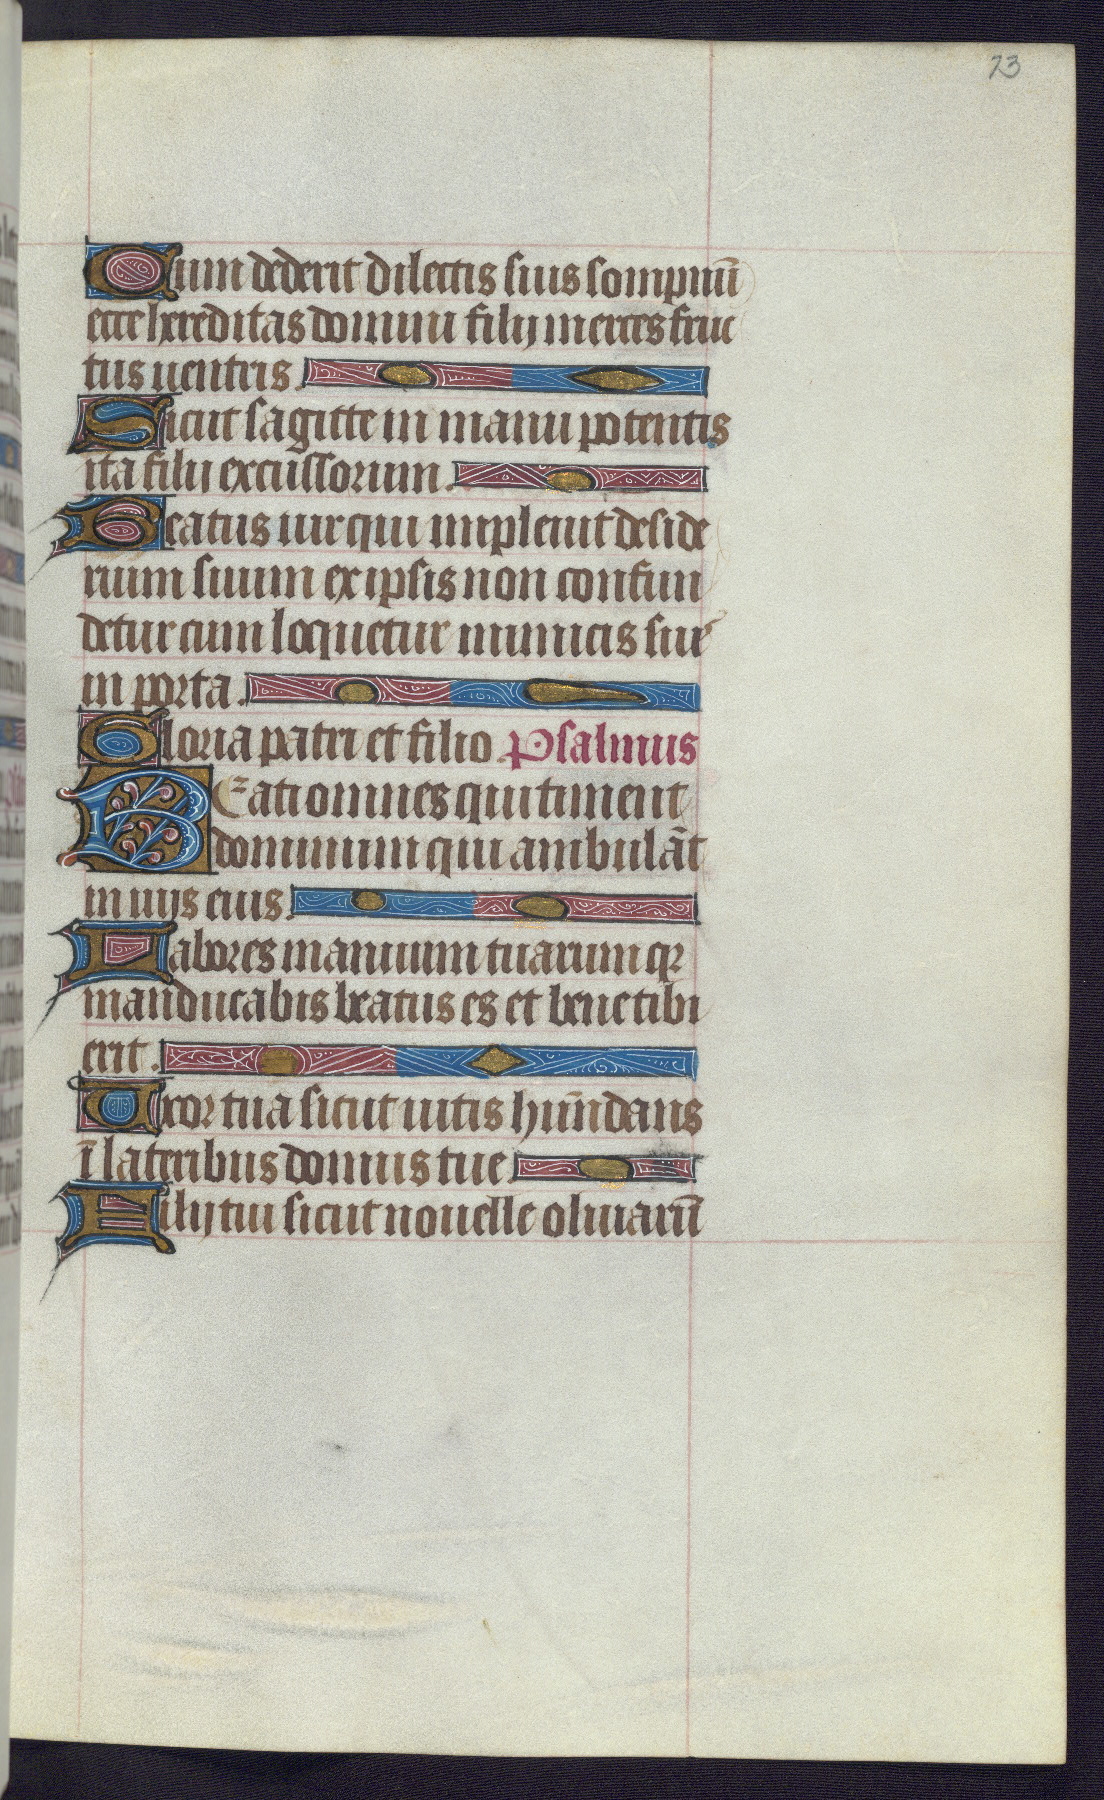 73
Cum dederit dilectis suis sompnū
ecce hereditas domini filij merces fruc
tus uentris.
Sicut sagitte in manu potentis
ita filij excussorum.
Beatus uir qui impleuit deside
rium suum ex ipsis non confun
detur cum loquetur inimicis suis
in porta.
Gloria patri et filio. Psalmus
BEati omnes qui timent
dominum qui ambulāt
in uijs eius.
Labores manuum tuarum qr
manducabis beatus es et bene tibi
erit.
Uxor tua sicut uitis hūndans
ī lateribus domus tue.
Filij tui sicut nouelle oliuarū